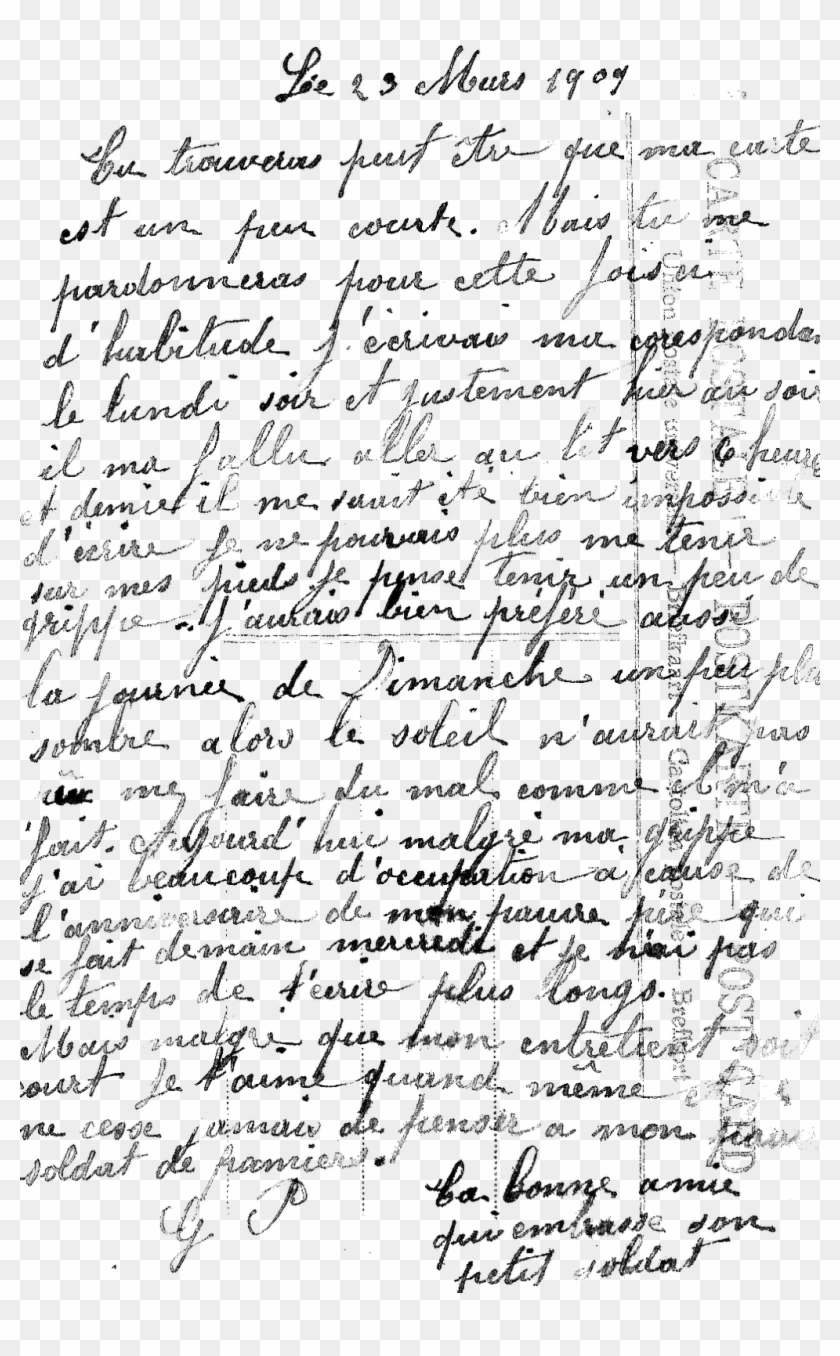 Le 23 Mars 1909
Tu trouveras peut être que ma carte
est un peu courte. Mais tu me
pardonneras pour cette fois ci
d'habitude j'écrivais ma corespondan
le lundi soir et justement hier au soir
il ma fallu aller au lit vers 6 heures
et demie il me serait été bien impossible
d'écrire je ne pouvais plus me tenir
sur mes pieds je pense tenir un peu de
grippe. J'aurais bien préféré aussi
la journée de Dimanche un peu plu
sombre alors le soleil n'aurait pas
me faire du mal comme il m'a
fait. Aujourd'hui malgré ma grippe
j'ai beaucoup d'occupation à cause de
l'anniversaire de mon pauvre père qui
se fait demain mercredi et je n'ai pas
le temps de t'écrire plus longs.
Mais malgré que mon entretient soit
court je t'aime quand même et
ne cesse jamais de penser a mon pauvre
soldat de
G P
Ta bonne amie
qui embrasse son
petit soldat
CARTE POSTALE — POSTKARTE — POST CARD
Union postale universelle — Briefkaart — Cartolina postale — Brefkort